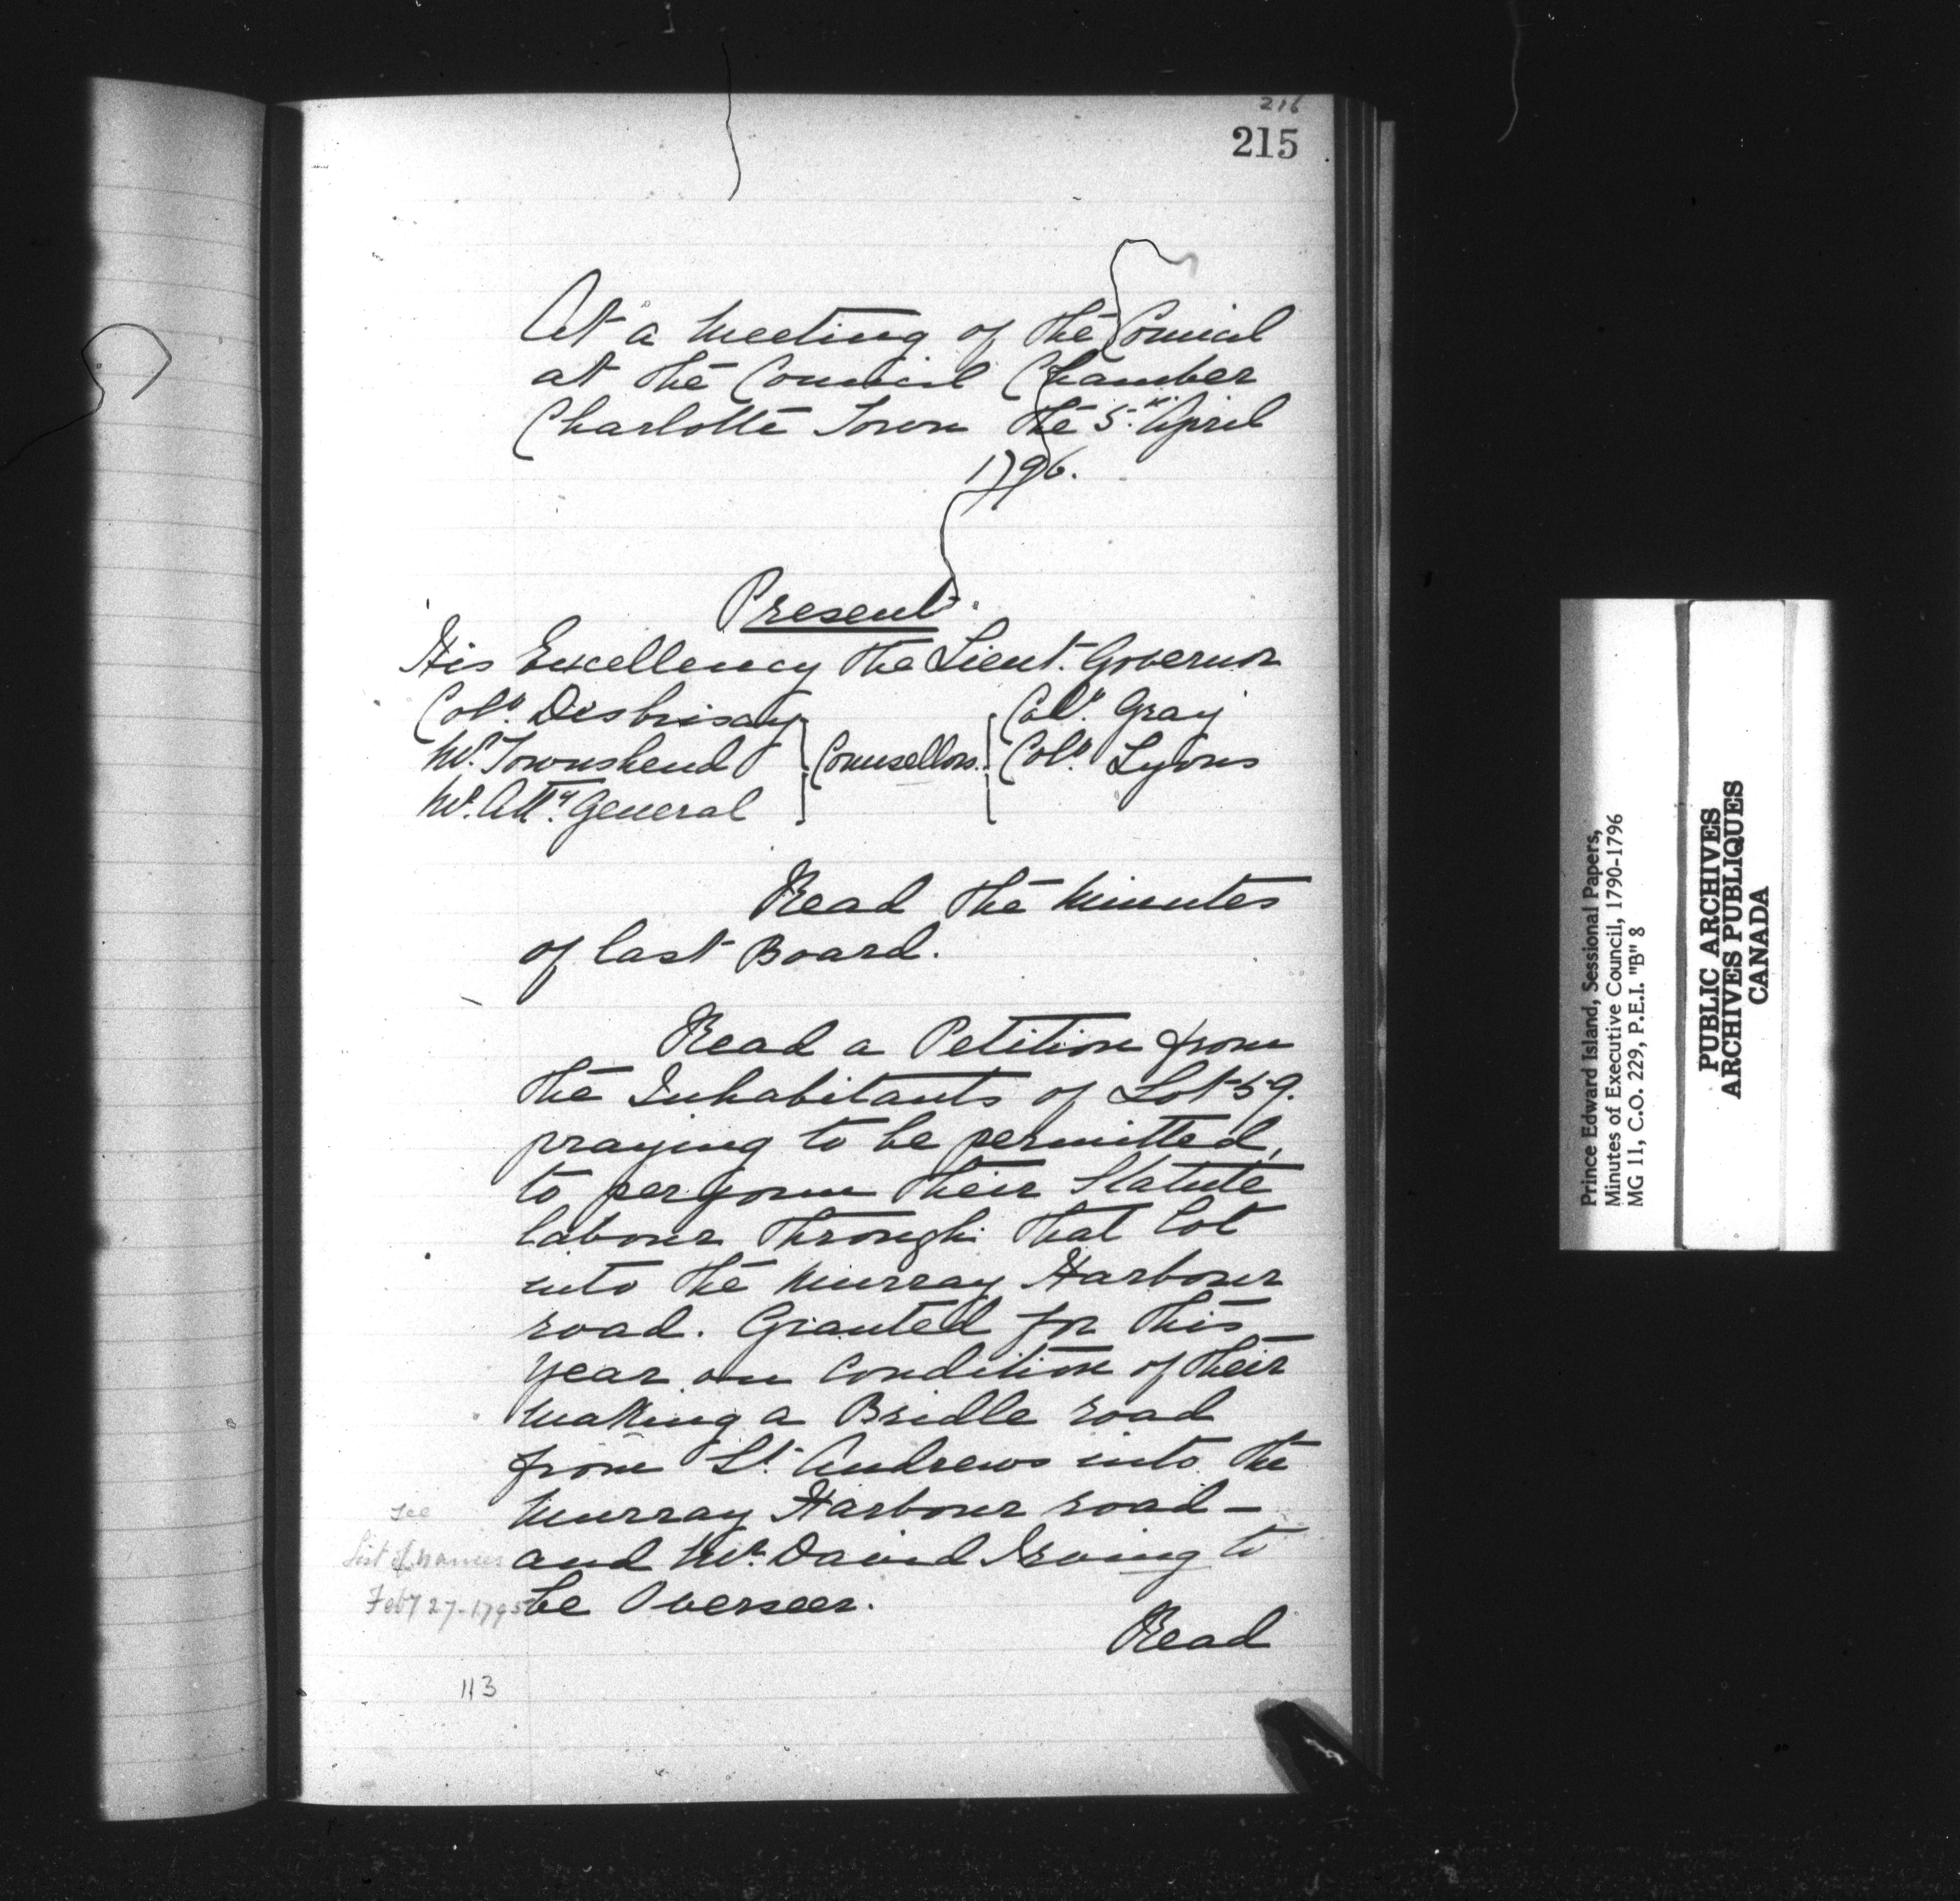 216
215
At a Meeting of the Council
at the Council Chamber
Charlotte Town the 5th April
1796.
Present.
His Excellency the Lieut. Governor
Coll. Desbrisay
Mr. Townshend
Mr. Atty. General
Counsellors.
Coll. Gray
Coll. Lyons
Read the Minutes
of last Board.
Read a Petition from
the Inhabitants of Lot 59.
praying to be permitted,
to perform their Statute
labour through that lot
into the Murray Harbour
road. Granted for this
year on condition of their
making a Bridle road
from St. Andrews into the
Murray Harbour road—
and Mr. David Irving to
be Overseer.
see
List of names
Feby 27-1795
Read
113
Prince Edward Island, Sessional Papers,
Minutes of Executive Council, 1790-1796
MG 11, C.O. 229, P.E.I. "B" 8
PUBLIC ARCHIVES
ARCHIVES PUBLIQUES
CANADA